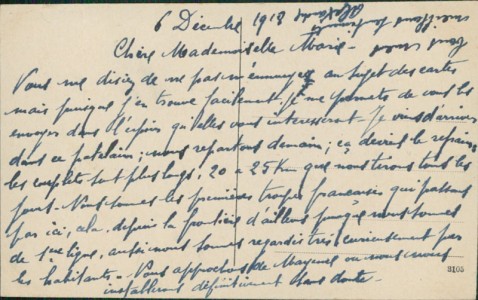 6 Décembre 1918
Chère Mademoiselle Marie -
Vous me disiez de ne pas m'ennuyer au sujet des cartes
mais puisque j'en trouve facilement, je me permets de vous les
envoyer dans l'espoir qu'elles vous intéresseront. Je viens d'arriver
dans ce patelain ; nous repartons demain ; ça devient le refrain,
les couplets sont plus longs, 20 à 25 Km que nous ferons tous les
jours. Nous sommes les premières troupes françaises qui passent
par ici, cela depuis la frontière d'ailleurs puisque nous sommes
de 1ère ligne, aussi nous sommes regardés très curieusement par
les habitants - Nous approchons de Mayence où nous nous
installerons définitivement sans doute -
3105